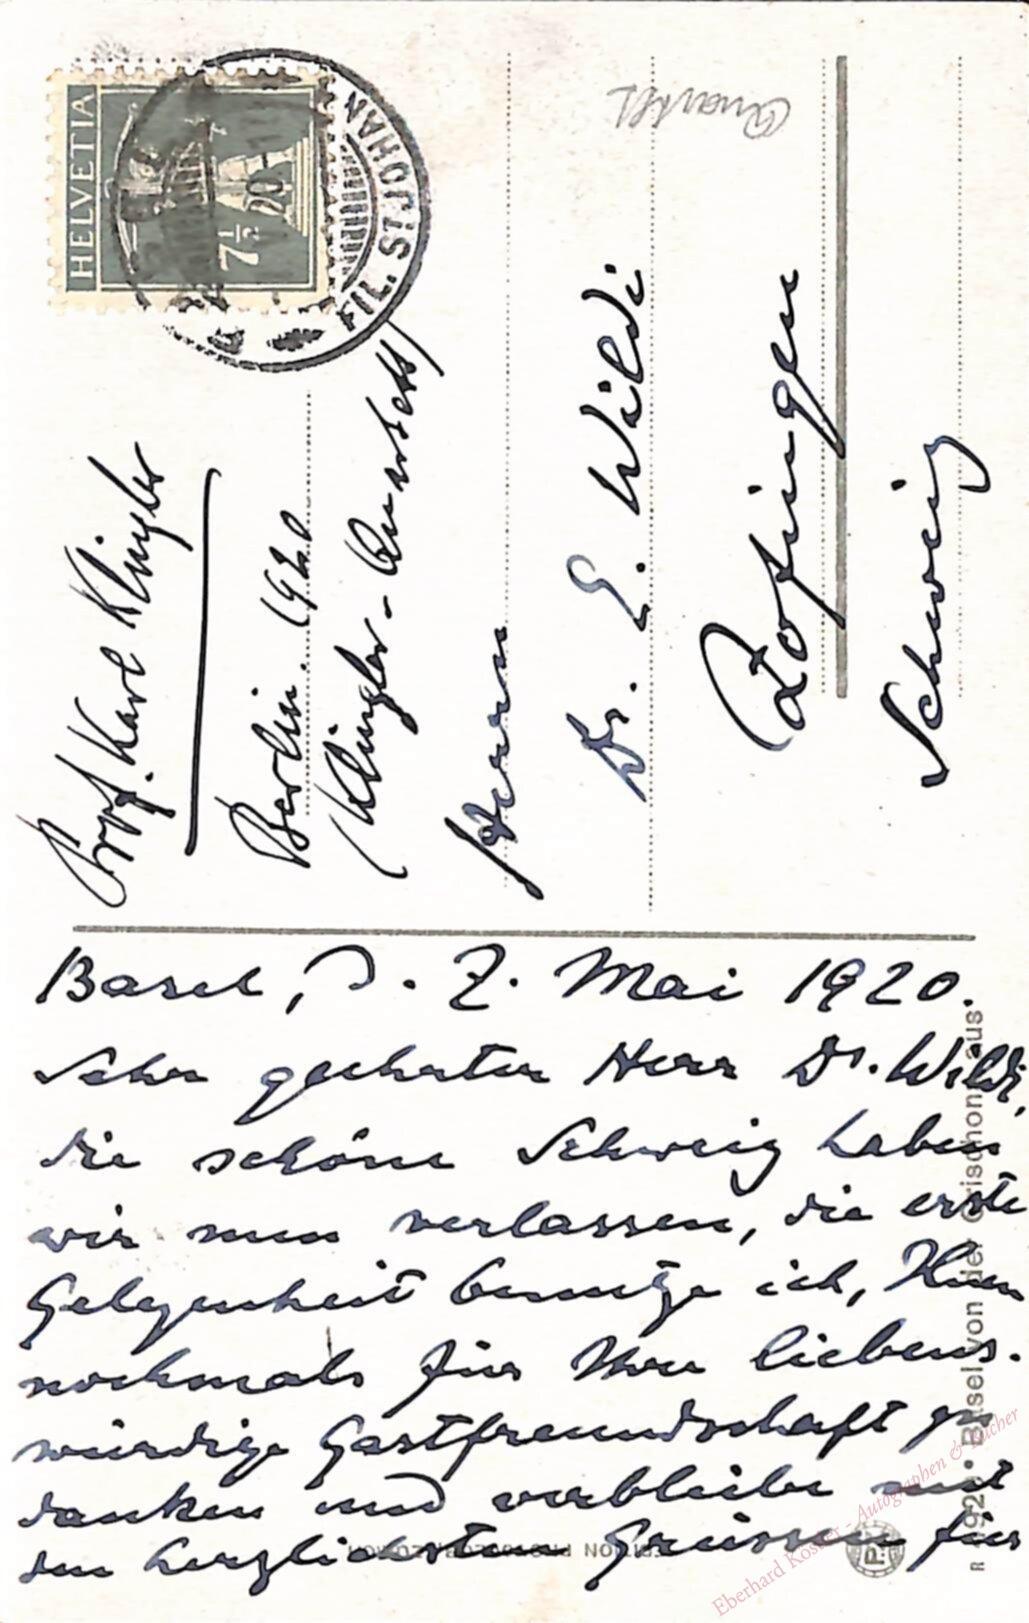 Basel, d. 7. Mai 1920.
Sehr geehrter Herr Dr. Wildi,
die schöne Schweiz haben
wir nun verlassen, die erste
Gelegenheit benutze ich, Ihnen
nochmals für Ihre liebens-
würdige Gastfreundschaft zu
danken und verbleibe mit
den herzlichsten Grüssen für
Prof. Karl Klingler
Berlin. 1920
(Klingler-Quartett)
Herrn
Dr. E. Wildi
Zofingen
Schweiz
Quartett
HELVETIA
7½
FIL. ST. JOHAN
Basel von der Crischona aus
Eberhard Köstler - Autographen & Bücher